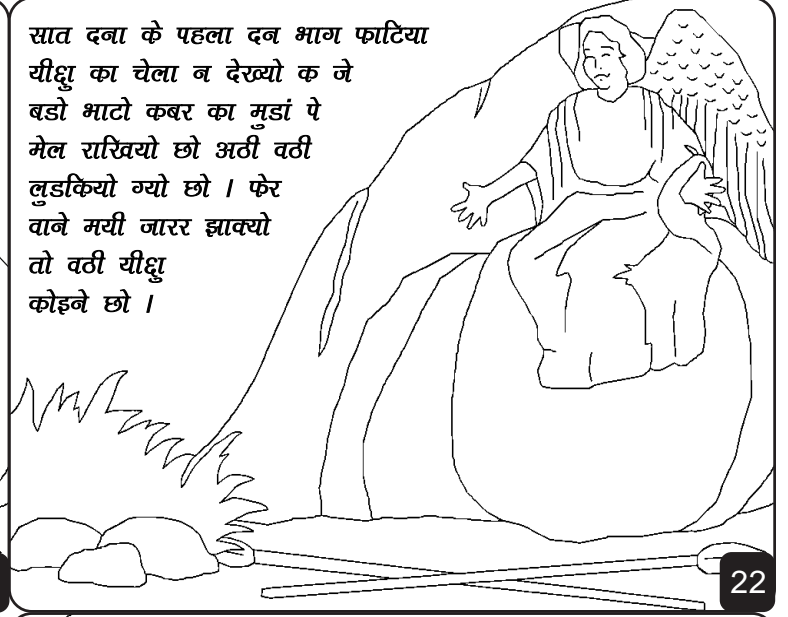 सात दना के पहला दन भाग फाटिया
यीक्षु का चेला न देख्यो क जे
बडो भाटो कबर का मुडां पे
मेल राखियो छो अठी वठी
लुडकियो ग्यो छो । फेर
वाने मयी जारर झाक्यो
तो वठी यीक्षु
कोइने छो ।
22